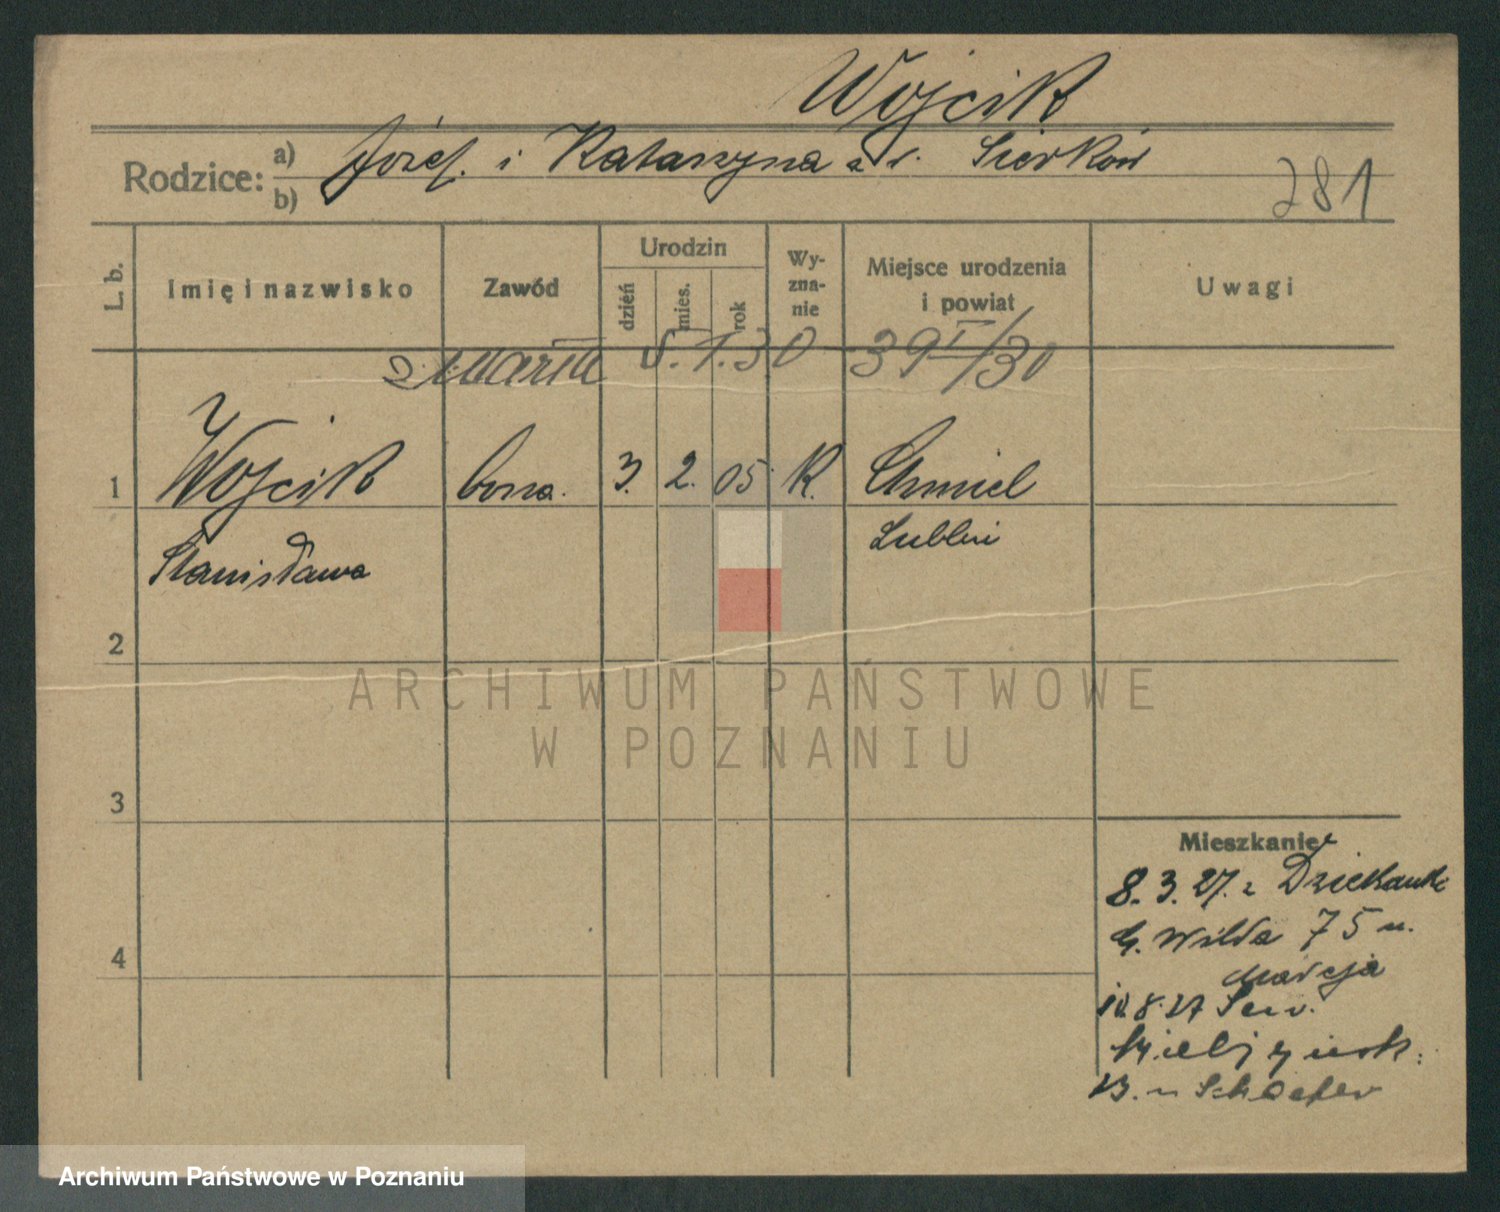 Wojcik
Rodzice: a) Józef i Katarzyna
b)
281
L. b.
Imię i nazwisko
Zawód
Urodzin
dzień
mies.
rok
Wy-
zna-
nie
Miejsce urodzenia
i powiat
Uwagi
zmarła 30 39 I/30
1 Wojcik bona. 3. 2. 05 K. Chmiel
Stanisława Lublin
2
3
4
Mieszkanie
8. 3. 27. z Dziekanki
G. Wilda 75 u.
10.8.27
13. u Schaefer
ARCHIWUM PAŃSTWOWE
W POZNANIU
Archiwum Państwowe w Poznaniu